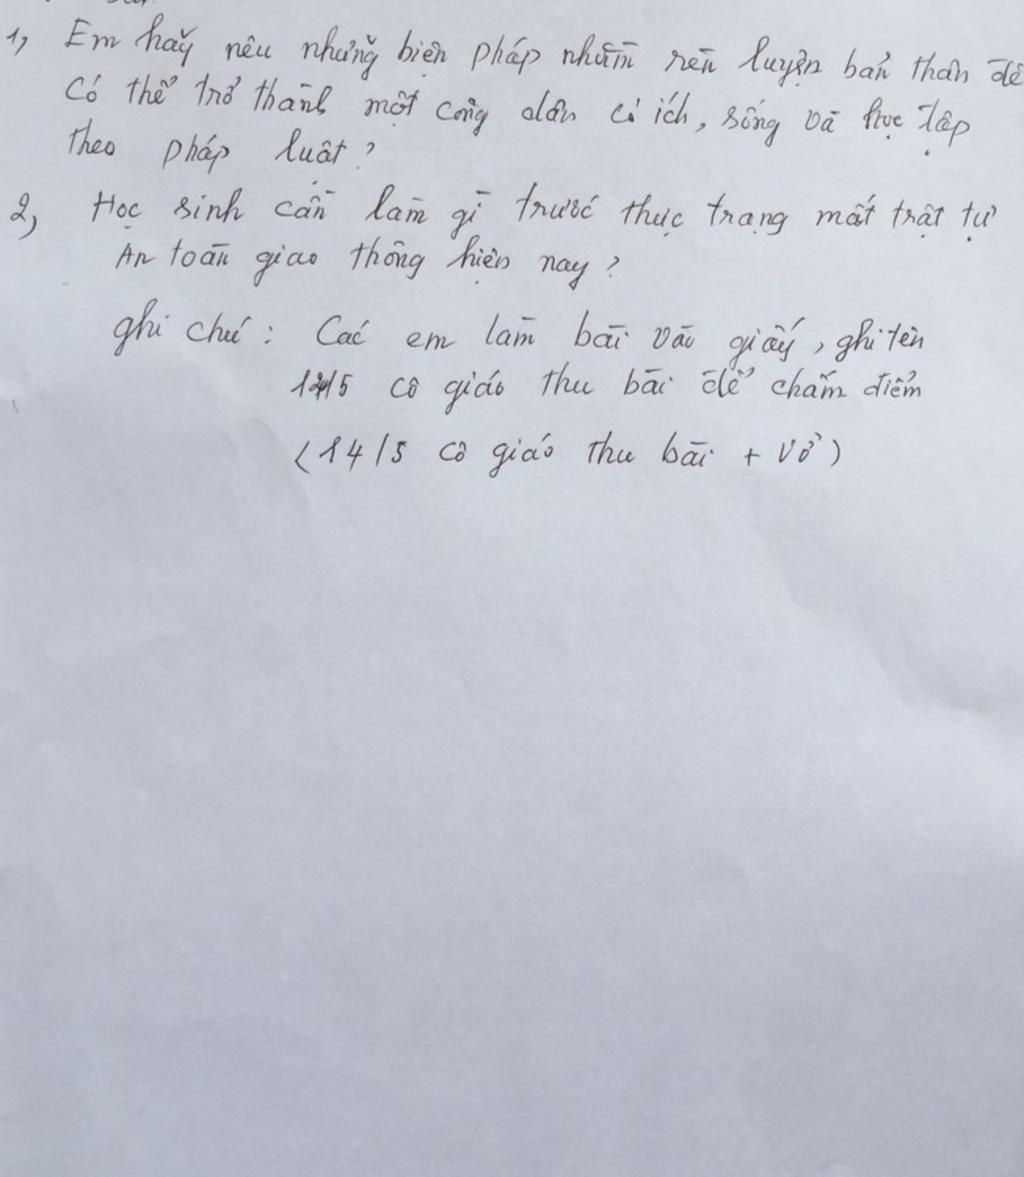 1, Em hãy nêu những biện pháp nhằm rèn luyện bản thân để
Có thể trở thành một công dân có ích, sống và học tập
theo pháp luật?
2, Học sinh cần làm gì trước thực trạng mất trật tự
An toàn giao thông hiện nay?
ghi chú: Các em làm bài vào giấy, ghi tên
/5 cô giáo thu bài để chấm điểm
(14/5 cô giáo thu bài + vở)